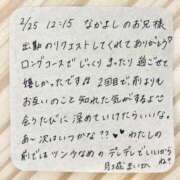 2/25 12:15 なかよしのお兄様
出勤のリクエストしてくれてありがとう♡
ロングコースでじっくりまったり過ごせて
嬉しかったです♡ 2回目で、前よりも
お互いのこと知れた気がするよ
会うたびに深めていけたらいいな。
あ〜次はいつかな??♥♥ わたしの
前ではツンツなめの デレデレでいいから
ね♡